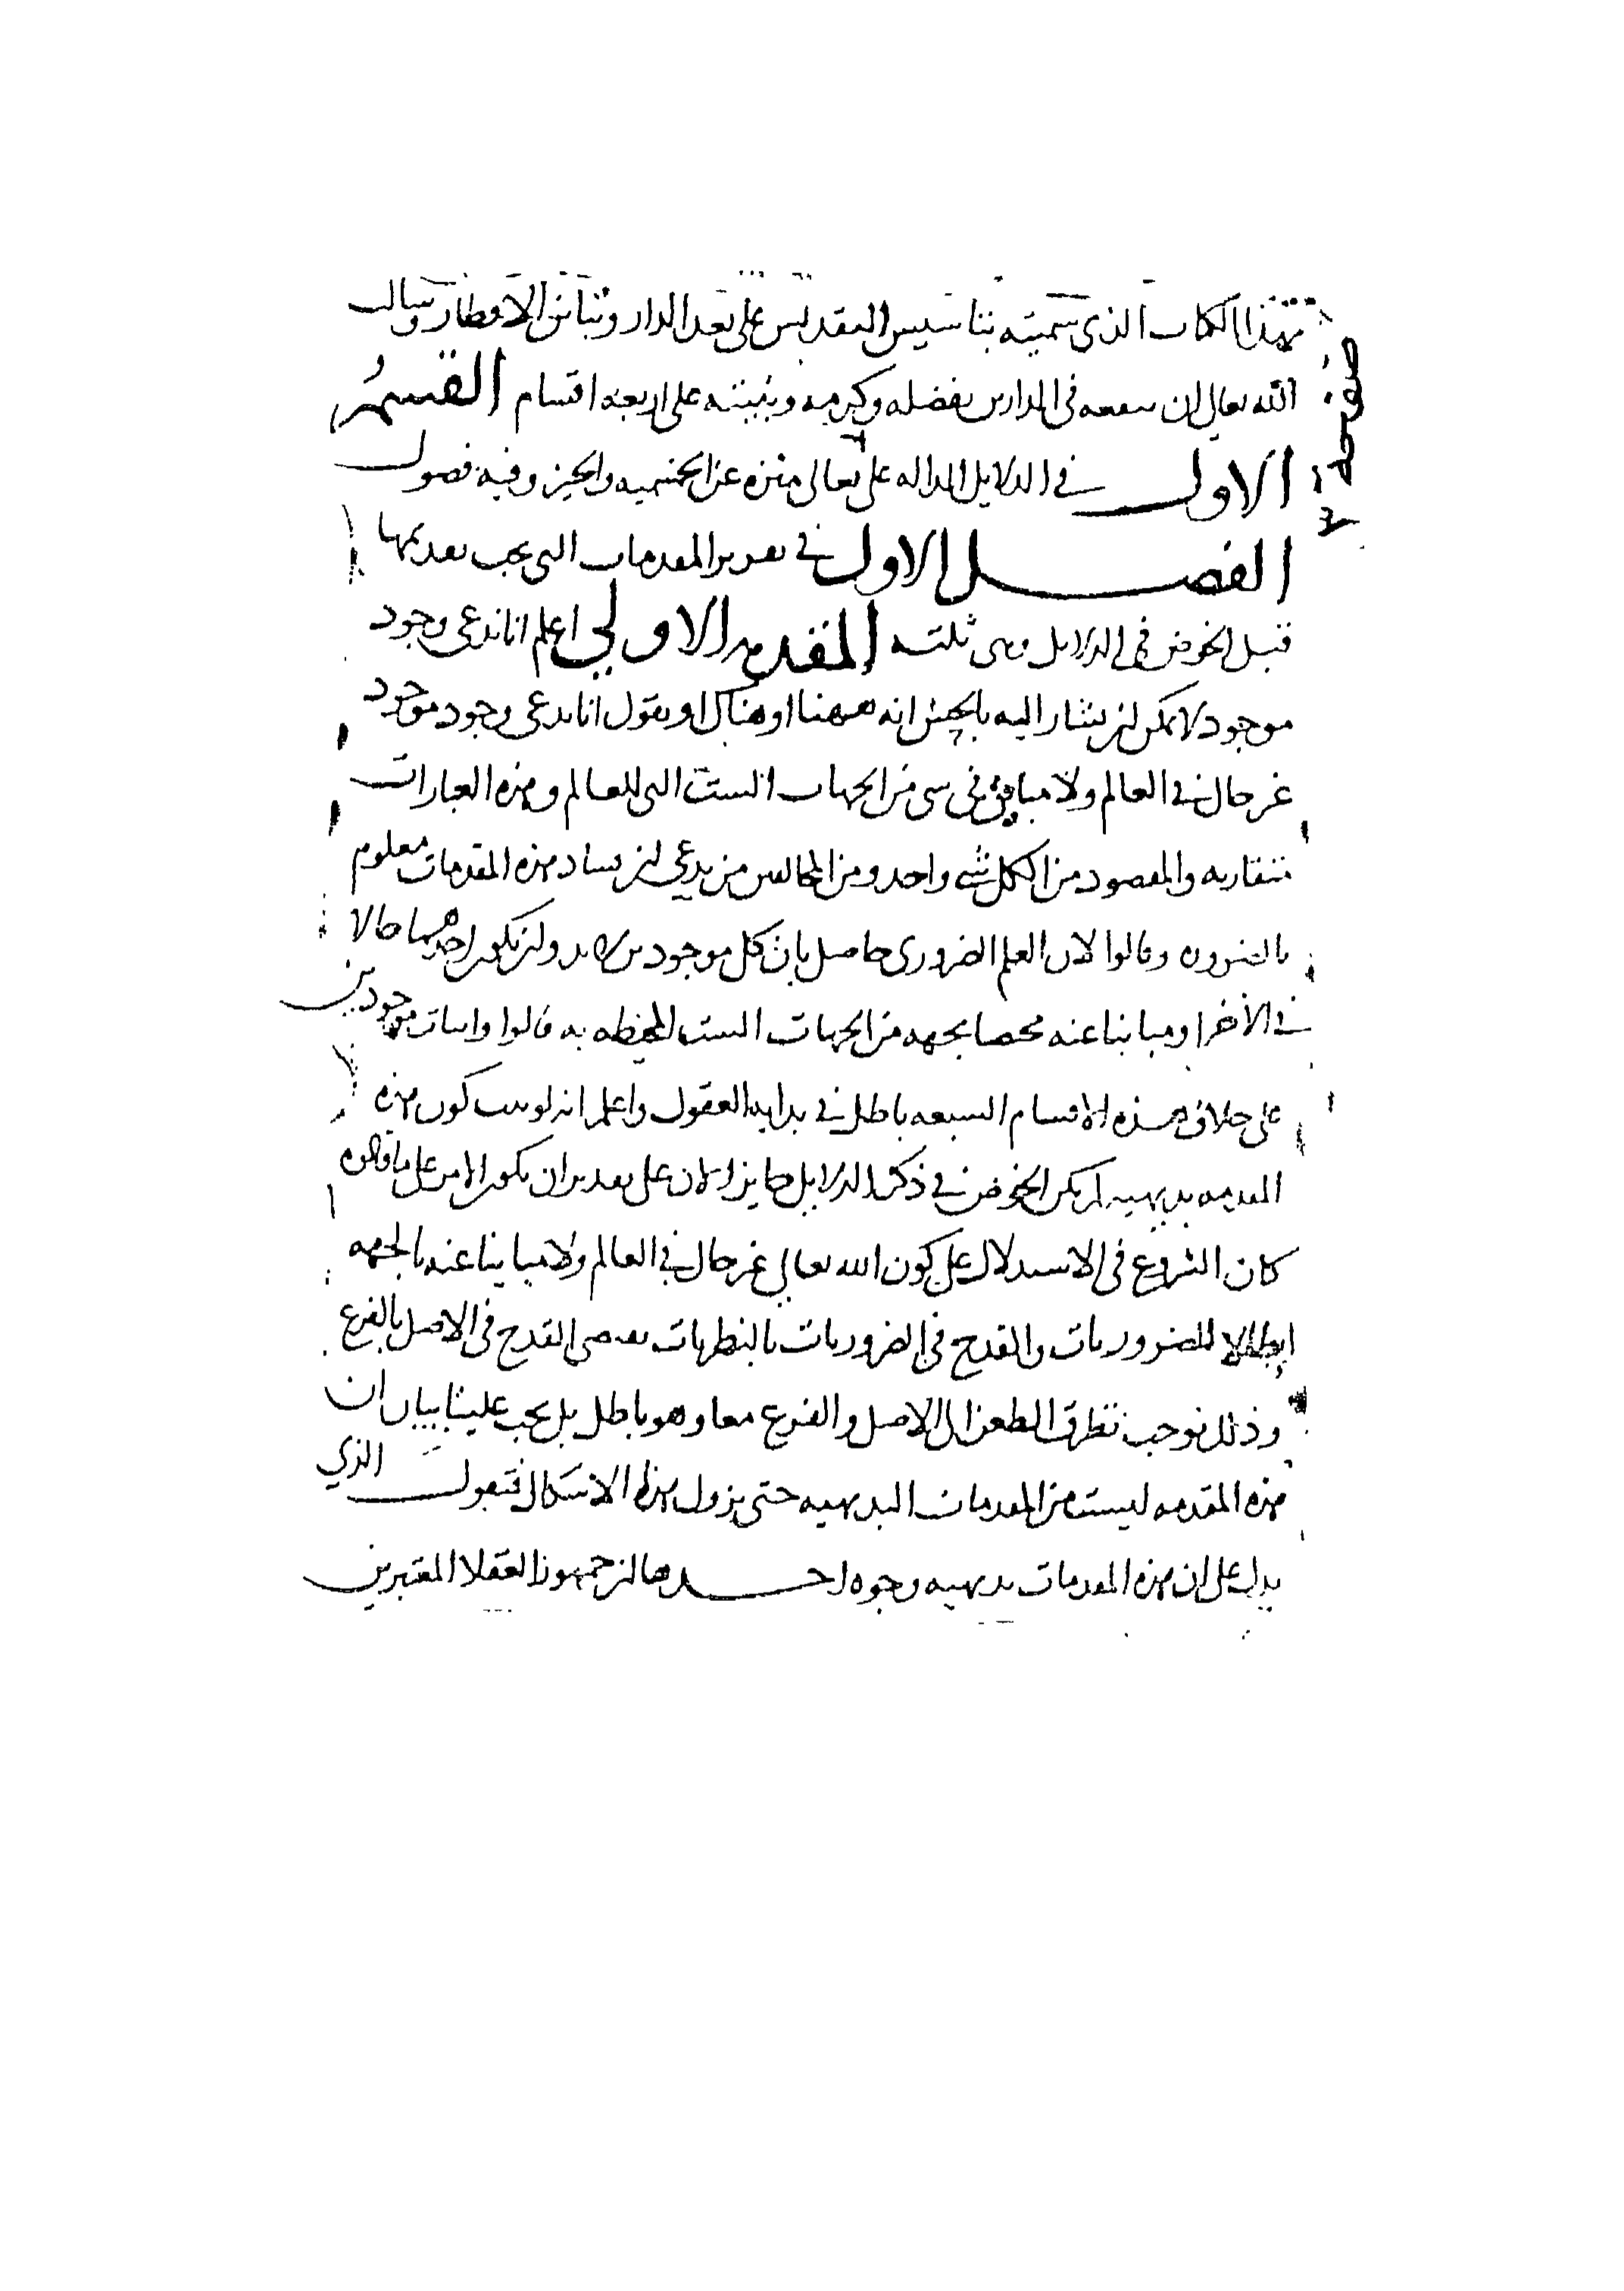 بهذا الكتاب الذي سميته بتاسيس التقديس على بعد الدار وتباين الاقطار وسالت
الله تعالى ان ينفعه في الدارين بفضله وكرمه ورتبته على اربعه اقسام القسم
الاول في الدلايل الداله على تعالى منزه عن الجسميه والحيز وفيه فصول
الفصل الاول في تقرير المقدمات التي يجب تقديمها
قبل الخوض في الدلايل وهي ثلثه المقدمه الاولي اعلم انا ندعي وجود
موجود لا يمكن ان يشار اليه بالحس انه ههنا او هناك او نقول انا ندعي وجود موجود
غير حال في العالم ولا مباين في شي من الجهات الست التي للعالم وهذه العبارات
متقاربه والمقصود من الكل شي واحد ومن المخالفين من يدعي ان فساد هذه المقدمات معلوم
بالضروره وقالوا لان العلم الضروري حاصل بان كل موجودين لا بد وان يكون احدهما حالا
في الاخر او مباينا عنه مختصا بجهه من الجهات الست المحيطه به قالوا واثبات موجودين
على خلاف هذه الاقسام السبعه باطل في بدايه العقول واعلم انه لو ثبت كون هذه
المقدمه بديهيه لم يكن الخوض في ذكر الدلايل جايزا لان على تقدير ان يكون الامر على ما قالوه
كان الشروع في الاستدلال على كون الله تعالي غير حال في العالم ولا مباينا عنه بالجهه
ابطالا للضروريات والقدح في الضروريات بالنظريات يقتضي القدح في الاصل بالفرع
وذلك يوجب تطرق الطعن الى الاصل والفرع معا وهو باطل بل يجب علينا بيان ان
هذه المقدمه ليست من المقدمات البديهيه حتى يزول هذا الاشكال فنقول الذي
يدل على ان هذه المقدمات بديهيه وجوه احدها ان جمهور العقلا المعتبرين
صفحة